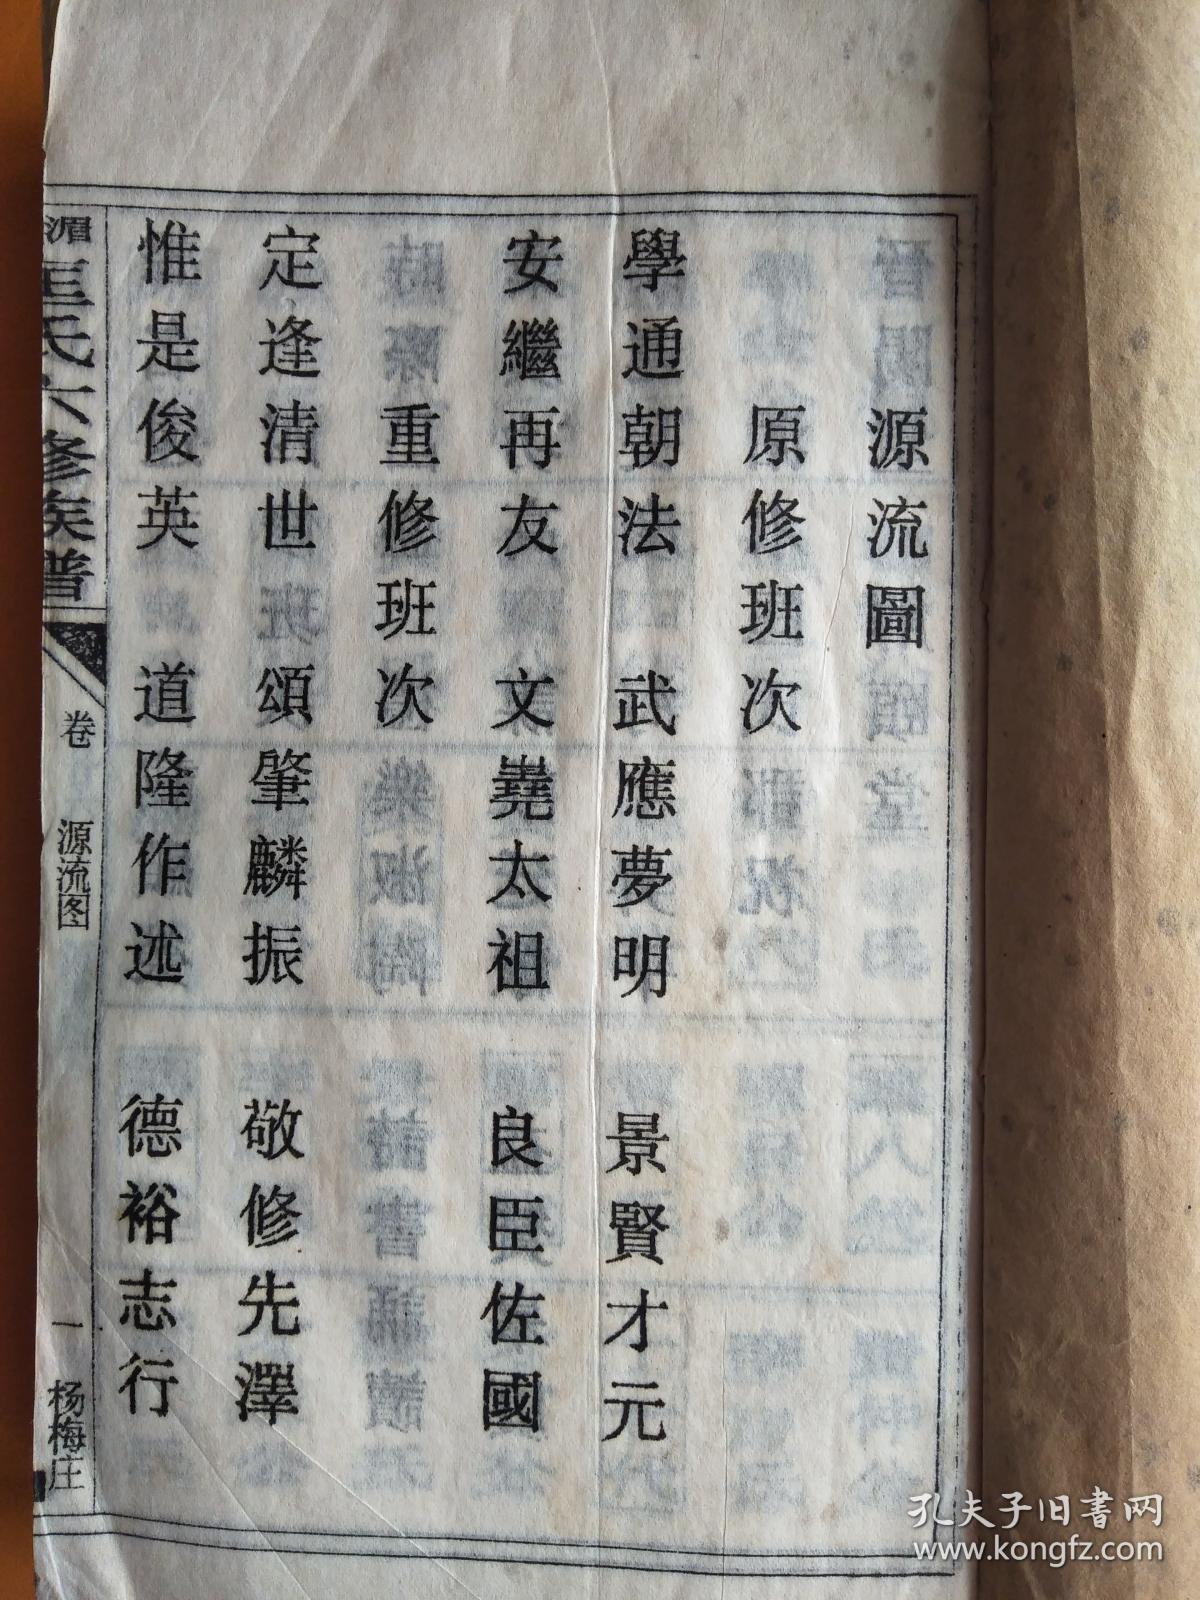 源流圖
原修班次
學通朝法 武應夢明 景賢才元
安繼再友 文堯太祖 良臣佐國
重修班次
定逢清世 頌肇麟振 敬修先澤
惟是俊英 道隆作述 德裕志行
湄 氏六修族譜
卷 源流图
一 杨梅庄
孔夫子旧书网
www.kongfz.com